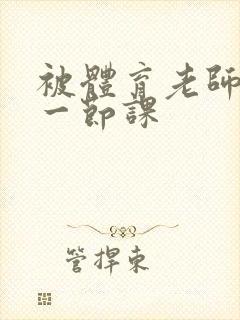 被體育老師
一節課
管捍東